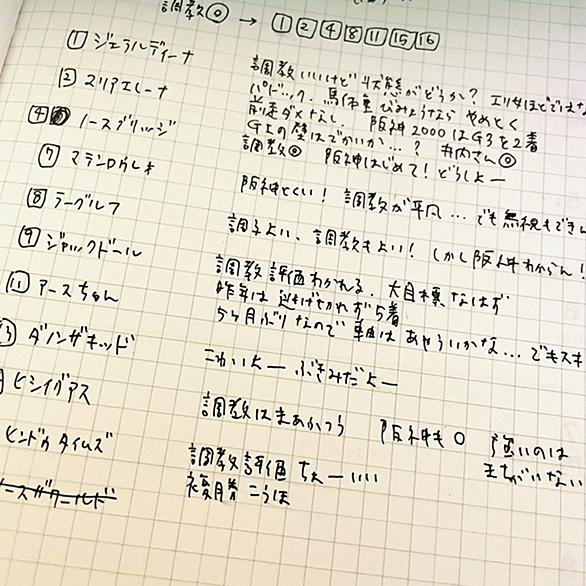 調教◎ → ① ② ④ ⑧ ⑪ ⑮ ⑯
① ジェラルディーナ
調教いいけど状態がどうか? エリ女ほどでは
パドック、馬体重 びみょうなら やめとく
② マリアエレーナ
前走ダメなし、 阪神2000はG3を2着
GIの壁はでかいか…? 井内さん◎
④ ノースブリッジ
調教◎ 阪神はじめて! どうしよー
⑦ マテンロウレオ
阪神とくい! 調教が平凡… でも無視もできん
⑧ ラーグルフ
調子よい、調教もよい! しかし阪神わからん!
⑨ ジャックドール
調教評価わかれる、大目標なはず
昨年は逃げきれず5着
⑪ アースちゃん
5ヶ月ぶりなので 軸は あやういかな… でもスキ
ダノンザキッド
こわいよー ぶきみだよー
ヒシイグアス
調教はまあふつう 阪神も○ 強いのは
まちがいない
ヒンドゥタイムズ
調教評価 ちょーいい
複勝 こうほ
ノースザワールド